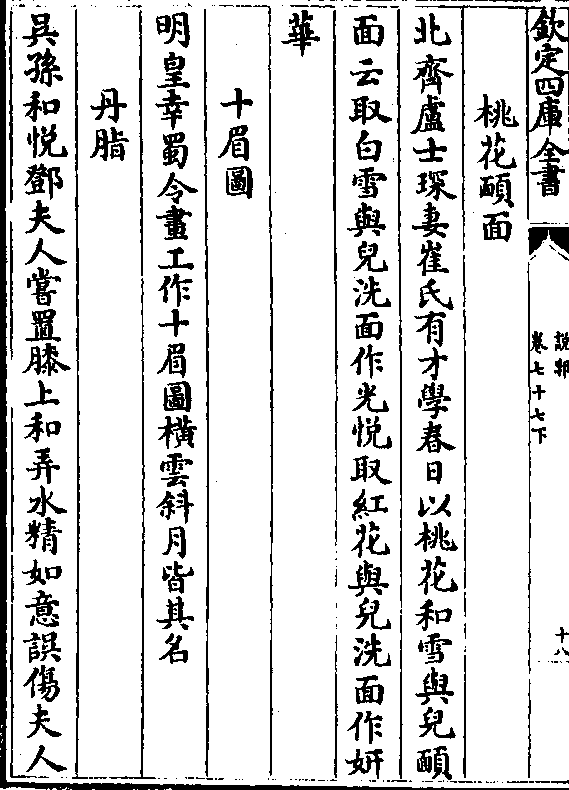 欽定四庫全書
說郛
卷七十七下
十八
桃花靧面
北齊盧士琛妻崔氏有才學春日以桃花和雪與兒靧
面云取白雪與兒洗面作光悅取紅花與兒洗面作妍
華
十眉圖
明皇幸蜀令畫工作十眉圖橫雲斜月皆其名
丹脂
吳孫和悅鄧夫人嘗置膝上和弄水精如意誤傷夫人